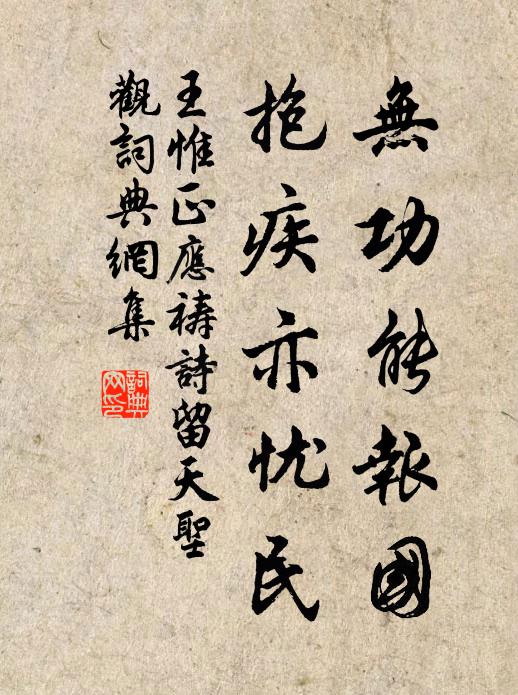 無功能報國
抱疾亦忧民
王惟正應禱詩留天聖
觀詞典網集
詞典
网印